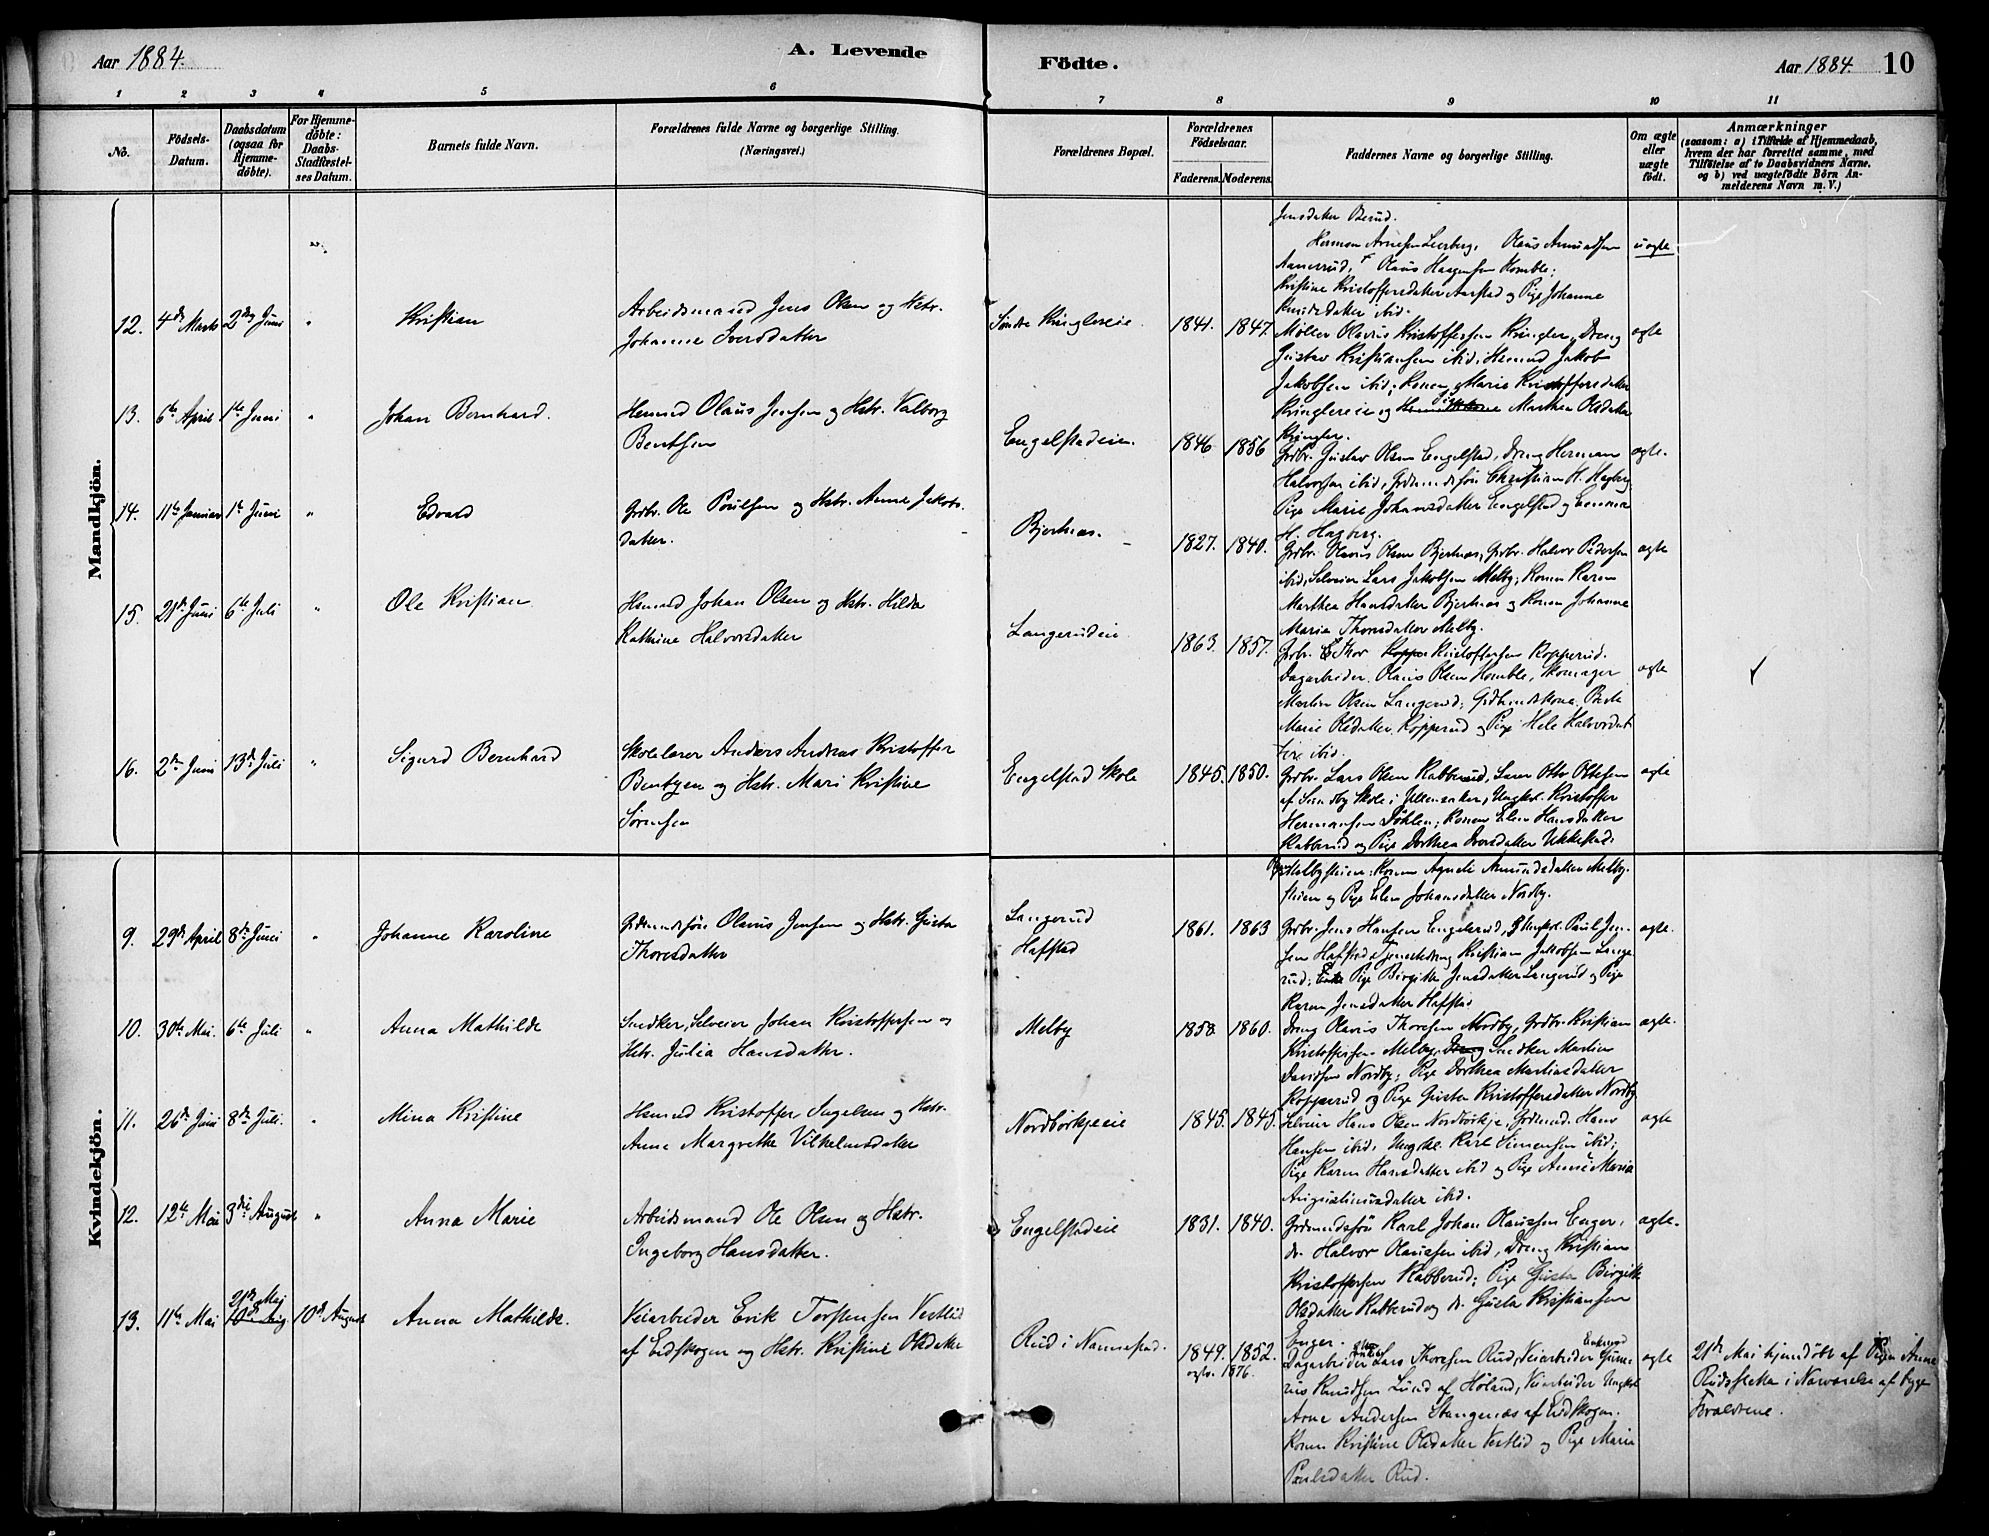 Aar 1884.
A. Levende
Födte.
Aar 1884. 10
1 2 3 4 5 6 7 8 9 10 11
No.
Födsels-
Datum.
Daabsdatum
(ogsaa for
Hjemme-
döbte).
For Hjemme-
döbte:
Daabs-
Stadfæstel-
ses Datum.
Barnets fulde Navn.
Forældrenes fulde Navne og borgerlige Stilling.
(Næringsvei.)
Forældrenes Bopæl.
Forældrenes
Födselsaar.
Faderens. Moderens.
Faddernes Navne og borgerlige Stilling.
Om ægte
eller
uægte
födt.
Anmærkninger
(saasom: a) i Tilfælde af Hjemmedaab,
hvem der har forrettet samme, med
Tilföielse af to Daabsvidners Navne,
og b) ved uægtefödte Börn An-
melderens Navn m. V.)
Mandkjön.
Jensdatter
Herman Arnesen Olaus Amundsen uægte
Olaus Haagensen Komble;
Kristine Kristoffersdatter Aarstad og Pige Johanne
Knudsdatter ibid.
12. 4de Marts 2den Juni " Kristian
Arbeidsmand Jens Olsen og Hstr.
Johanne Iversdatter
Søndre Kringlereie. 1841. 1847.
Møller Olavus Kristoffersen Kringler, Dreng ægte
Gustav Kristiansen ibid, Hsmnd Jakob
Jakobsen ibid; Konen Marie Kristoffersdatter
Kringlereie og Pige Marthea Olsdatter
Kringler.
13. 6te April 1ste Juni " Johan Bernhard.
Hsmnd Olaus Jensen og Hstr. Valborg
Bentsen
Engelstadeie. 1846 1856
Grdbr. Gustav Olsen Engelstad, Dreng Herman ægte.
Halvorsen ibid, Grdmndssøn Christian H. Hagberg,
Pige Marie Johansdatter Engelstad og Emma
H. Hagberg.
14. 11te Januar 1ste Juni " Edvard
Grdbr. Ole Poulsen og Hstr. Anne Jakobs-
datter.
Bjerknes. 1827. 1840.
Grdbr. Olavus Olsen Bjerknes, Grdbr. Halvor Pedersen ægte
ibid, Selveier Lars Jakobsen Melby; Konen Karen
Marthea Hansdatter Bjerknes og Konen Johanne
Marie Thorsdatter Melby.
15. 21de Juni 6te Juli " Ole Kristian
Hsmnd Johan Olsen og Hstr. Hilda
Kathrine Halvorsdatter
Langerudeie 1863. 1857.
Grdbr. Thor Kristoffersen Kopperud.
Dagarbeider Olaus Olsen Homble, Skomager ægte
Martin Olsen Langerud; Grdmndskone Berte
Marie Olsdatter Kopperud og Pige Hele Halvorsdat-
ter ibid.
16. 2den Juni 13de Juli " Sigurd Bernhard
Skolelærer Anders Andreas Kristoffer
Bentzen og Hstr. Mari Kristine
Sørensen
Engelstad Skole 1845. 1850.
Grdbr. Lars Olsen Rabberud, Lærer Otto Ottesen ægte
af Sundby Skole i Ullensaker, Ungkl. Kristoffer
Hermansen Døhlen; Konen Elen Hansdatter
Rabberud og Pige Dorthea Iversdatter Ukkestad.
Kvindekjön.
Melbystuen; Konen Agnete Amundsdatter Melby-
stuen og Pige Elen Johansdatter Nordby.
9. 29de April 8de Juni " Johanne Karoline
Grdmndssøn Olavus Jensen og Hstr. Gusta
Thorsdatter
Langerud
Hafstad
1861. 1863
Grdbr. Jens Hansen Engelsrud, Ungkl. Paul Jen- ægte.
sen Hafstad, Tjenestedreng Kristian Jakobsen Lange-
rud; Pige Birgitte Jensdatter Langerud og Pige
Karen Jensdatter Hafstad
10. 30te Mai. 6te Juli " Anna Mathilde
Snedker, Selveier Johan Kristoffersen og
Hstr. Julia Hansdatter.
Melby 1858 1860.
Dreng Olavus Thoresen Nordby, Grdbr. Kristian ægte.
Kristoffersen Melby, Snedker Martin
Davidsen Nordby; Pige Dorthea Martinsdatter
Kopperud og Pige Gusta Kristoffersdatter Nordby
11. 26de Juni 8de Juli. " Mina Kristine
Hsmnd Kristoffer Ingelsen og Hstr.
Anne Margrethe Vilhelmsdatter
Nordbörkjeeie 1845. 1845.
Selveier Hans Olsen Nordbörkje, Grdmnd. Hans ægte
Hansen ibid, Ungkl. Karl Simensen ibid;
Pige Karen Hansdatter ibid og Pige Anne Maria
Augustinusdatter ibid.
12. 12te Mai 3die August " Anna Marie
Arbeidsmand Ole Olsen og Hstr.
Ingeborg Hansdatter.
Engelstadeie 1831. 1840.
Grdmndssøn Karl Johan Olaussen Enger, ægte.
do. Halvor Olaussen ibid, Dreng Kristian
Kristoffersen Rabberud; Pige Gusta Birgitte
Olsdatter Rabberud og do. Gusta Kristiansen
Enger.
13. 11te Mai 21de Maj 10de Aug. 10de August Anna Mathilde.
Veiarbeider Erik Torstensen Vestlid
af Eidskogen og Hstr. Kristine Olsdatter
Rud i Nannestad. 1849. 1852.
ægtv. 1876.
Dagarbeider Lars Thoresen Rud, Veiarbeider Gune- ægte
rius Knudsen Lund af Höland, Veiarbeider Ungkl.
Arne Andersen Stangenæs af Eidskogen.
Konen Kristine Olsdatter Vestlid og Pige Maria
Poulsdatter Rud.
21de Mai hjemdöbt af Pigen Anne
Rudssletta i Nærværelse af begge
Forældrene.